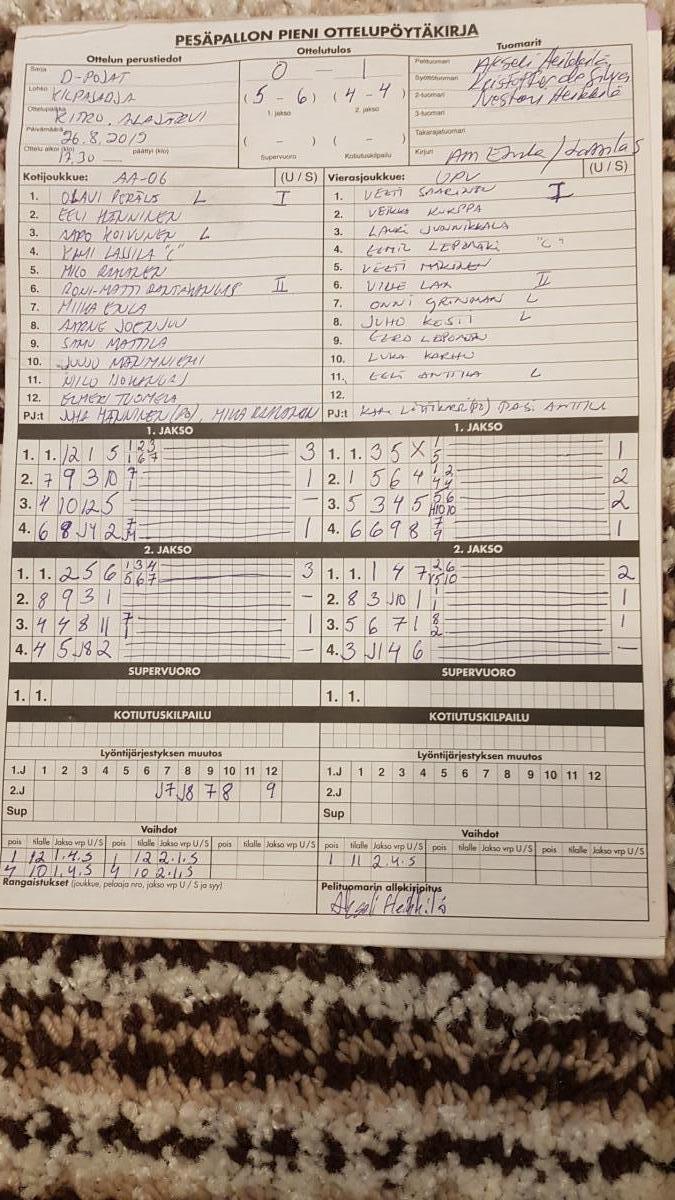 PESÄPALLON PIENI OTTELUPÖYTÄKIRJA
Ottelun perustiedot
Sarja D-POJAT
Lohko KILPASARJA
Ottelupaikka KITRO, ALAJÄRVI
Päivämäärä 26.8.2019
Ottelu alkoi (klo) 17.30 päättyi (klo)
Ottelutulos
0 - 1
(5 - 6) (4 - 4)
1. jakso 2. jakso
( - ) ( - )
Supervuoro Kotiutuskilpailu
Tuomarit
Pelituomari Akseli Heikkilä
Syöttötuomari Kristoffer de Silva
2-tuomari Nestori Heikkilä
3-tuomari
Takarajatuomari
Kirjuri
Kotijoukkue: AA-06 (U / S)
1. OLAVI PERÄLÄ L I
2. EELI HÄNNINEN
3. AARO KOIVUNEN L
4. KIMI LASSILA "C"
5. MILO
6. RONI-MATTI RANTAKANGAS II
7. MIIKA ENLA
8. AARNE
9. SAMU MATTILA
10. JUUSO MÄNNIEMI
11. NIILO
12. ELMERI TUOMELA
PJ:t JUHA HÄNNINEN (PJ), MIKA
Vierasjoukkue: UPV (U / S)
1. VEETI SAARINEN I
2. VEIKKA KURPPA
3. LAURI JUNNIKKALA
4. EEMIL LEPOMÄKI "C"
5. VEETI MÄKINEN
6. VILLE LAX II
7. ONNI GRÖNMAN L
8. JUHO KESTI L
9. EERO LEPONEN
10. LUKA KARHU
11. EELI ANTTILA L
12.
PJ:t (PJ) PASI ANTTILA
1. JAKSO
1. 1. 12 1 5 1 2 3 1 6 7 3
2. 7 9 3 10 7 1 1
3. 4 10 12 5 –
4. 6 8 J4 2 7 J4 1
1. JAKSO
1. 1. 3 5 X 1 5 1
2. 1 5 6 4 1 2 4 4 2
3. 5 3 4 5 5 6 10 10 2
4. 6 6 9 8 7 9 1
2. JAKSO
1. 1. 2 5 6 1 3 4 5 6 7 3
2. 8 9 3 1 –
3. 4 4 8 11 7 1 1
4. 4 5 J8 2 –
2. JAKSO
1. 1. 1 4 7 2 6 5 10 2
2. 8 3 J10 1 1 1 1
3. 5 6 7 1 8 2 1
4. 3 J1 4 6 –
SUPERVUORO
1. 1.
SUPERVUORO
1. 1.
KOTIUTUSKILPAILU
KOTIUTUSKILPAILU
Lyöntijärjestyksen muutos
1.J 1 2 3 4 5 6 7 8 9 10 11 12
2.J J7 J8 7 8 9
Sup
Lyöntijärjestyksen muutos
1.J 1 2 3 4 5 6 7 8 9 10 11 12
2.J
Sup
Vaihdot
pois tilalle Jakso vrp U / S pois tilalle Jakso vrp U / S pois tilalle Jakso vrp U / S
1 12 1.4.S 1 12 2.1.S
4 10 1.4.S 4 10 2.1.S
Vaihdot
pois tilalle Jakso vrp U / S pois tilalle Jakso vrp U / S pois tilalle Jakso vrp U / S
1 11 2.4.S
Rangaistukset (joukkue, pelaaja nro, jakso vrp U / S ja syy)
Pelituomarin allekirjoitus
Akseli Heikkilä